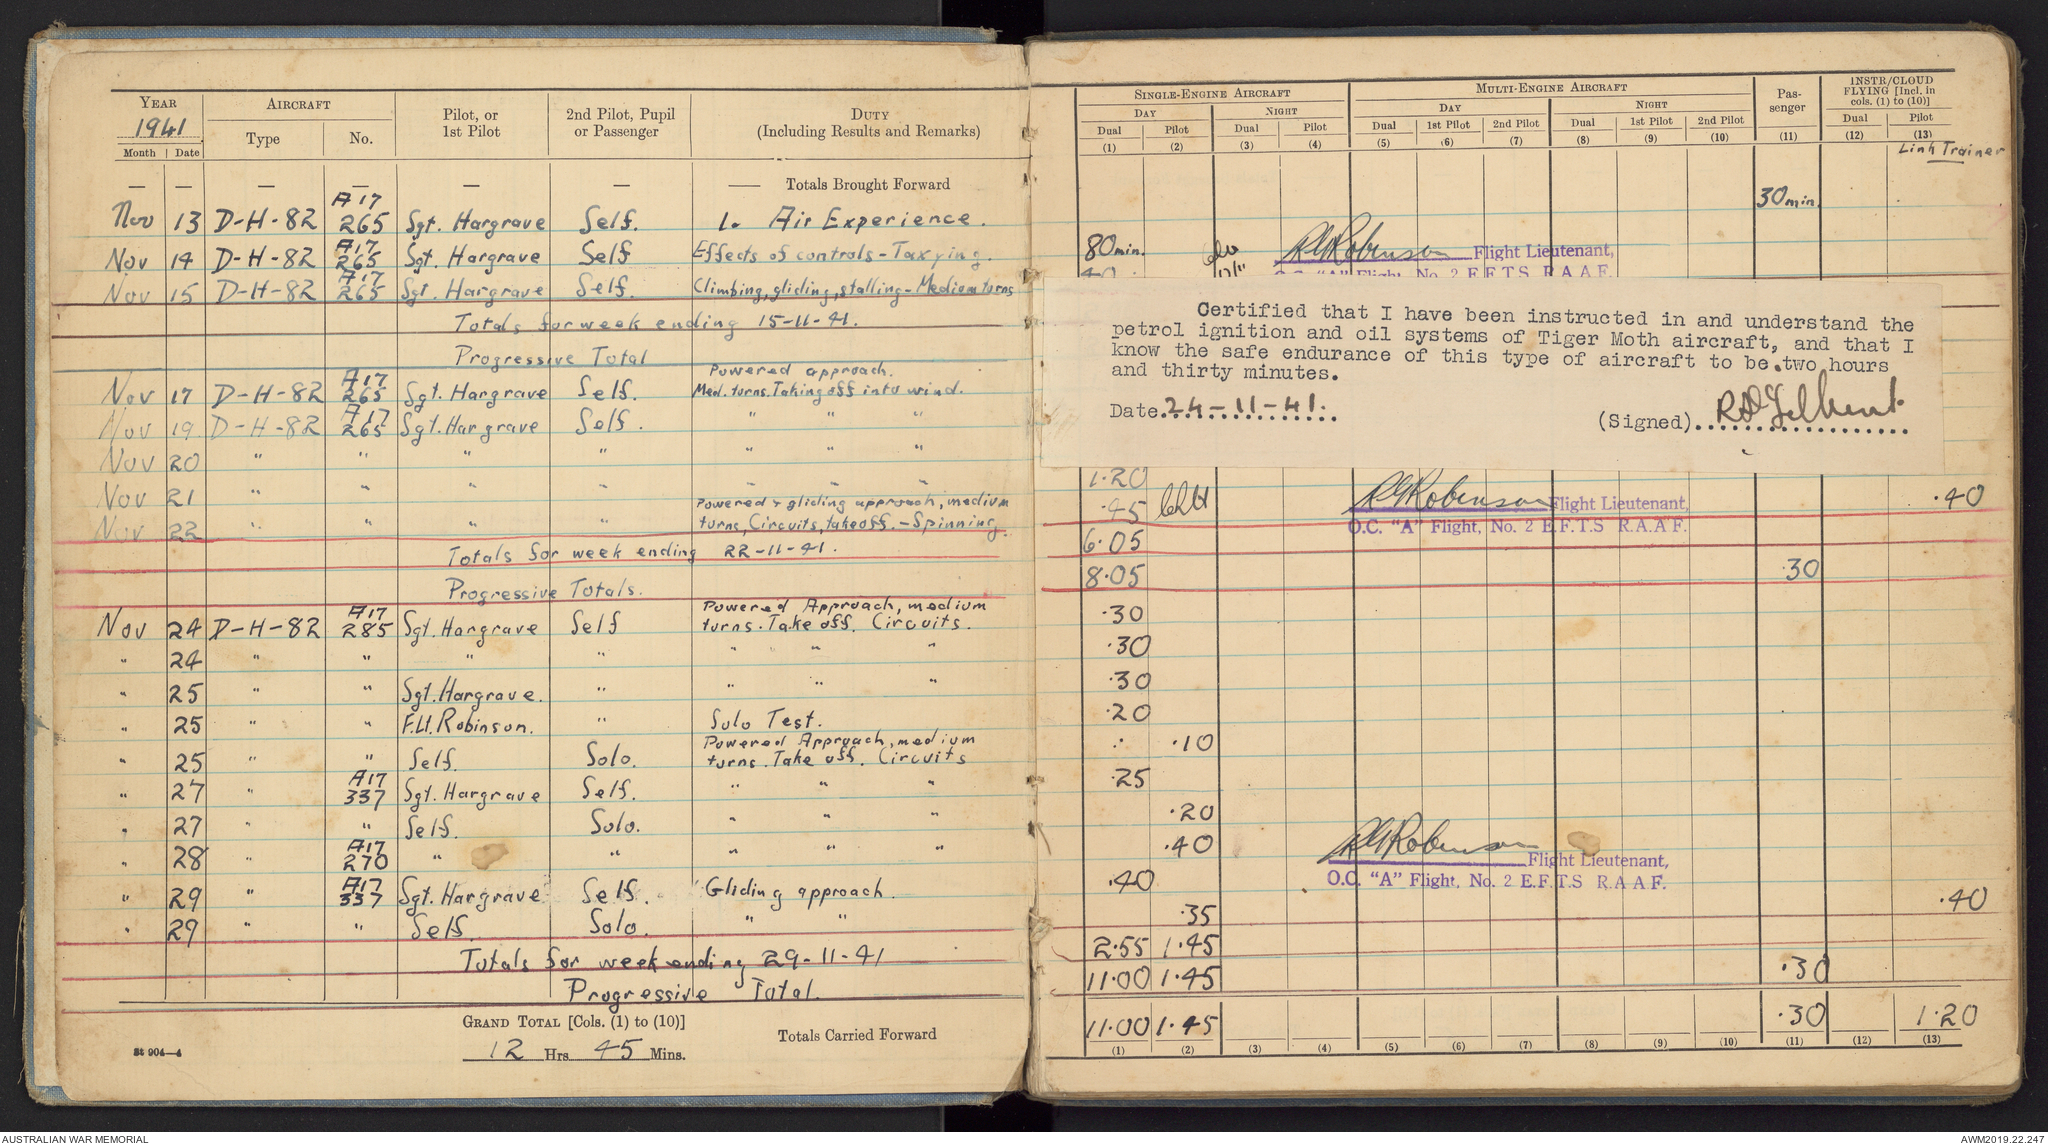 YEAR AIRCRAFT Pilot, or 1st Pilot 2nd Pilot, Pupil or Passenger DUTY (Including Results and Remarks)
1941 Type No.
Month Date
— — — — — — — Totals Brought Forward
Nov 13 D-H-82 A17 265 Sgt. Hargrave Self. 1. Air Experience.
Nov 14 D-H-82 A17 265 Sgt. Hargrave Self Effects of controls - Taxying.
Nov 15 D-H-82 A17 265 Sgt. Hargrave Self. Climbing, gliding, stalling - Medium turns
Totals for week ending 15-11-41.
Progressive Total
Powered approach.
Nov 17 D-H-82 A17 265 Sgt. Hargrave Self. Med. turns. Taking off into wind.
Nov 19 D-H-82 A17 265 Sgt. Hargrave Self. " " "
Nov 20 " " " " " " "
Nov 21 " " " " " "
Powered + gliding approach, medium
Nov 22 " " " " turns, Circuits, takeoff. - Spinning.
Totals for week ending 22-11-41.
Progressive Totals.
Powered Approach, medium
Nov 24 D-H-82 A17 285 Sgt. Hargrave Self turns. Take off. Circuits.
" 24 " " " " " " "
" 25 " " Sgt. Hargrave. " " " "
" 25 " " F.Lt. Robinson. " Solo Test.
Powered Approach, medium
" 25 " " Self. Solo. turns. Take off. Circuits
" 27 " A17 337 Sgt. Hargrave Self. " " "
" 27 " " Self. Solo. " " "
" 28 " A17 270 " " " " "
" 29 " A17 337 Sgt. Hargrave Self. Gliding approach.
" 29 " " Self Solo. " "
Totals for week ending 29-11-41
Progressive Total.
GRAND TOTAL [Cols. (1) to (10)]
12 Hrs 45 Mins.
Totals Carried Forward
St 904—4
SINGLE-ENGINE AIRCRAFT MULTI-ENGINE AIRCRAFT Pas-senger INSTR/CLOUD FLYING [Incl. in cols. (1) to (10)]
DAY NIGHT DAY NIGHT
Dual Pilot Dual Pilot Dual 1st Pilot 2nd Pilot Dual 1st Pilot 2nd Pilot Dual Pilot
(1) (2) (3) (4) (5) (6) (7) (8) (9) (10) (11) (12) (13)
Link Trainer
30 min.
80 min. RGRobinson Flight Lieutenant,
O.C. "A" Flight, No. 2 E.F.T.S R.A.A.F.
Certified that I have been instructed in and understand the
petrol ignition and oil systems of Tiger Moth aircraft, and that I
know the safe endurance of this type of aircraft to be.two hours
and thirty minutes.
Date.24-11-41.
(Signed)
1.20
.45 RGRobinson Flight Lieutenant, .40
O.C. "A" Flight, No. 2 E.F.T.S R.A.A.F.
6.05
8.05 .30
.30
.30
.30
.20
.10
.25
.20
.40 RGRobinson Flight Lieutenant,
.40 O.C. "A" Flight, No. 2 E.F.T.S R.A.A.F.
.35 .40
2.55 1.45
11.00 1.45 .30
11.00 1.45 .30 1.20
(1) (2) (3) (4) (5) (6) (7) (8) (9) (10) (11) (12) (13)
AUSTRALIAN WAR MEMORIAL
AWM2019.22.247